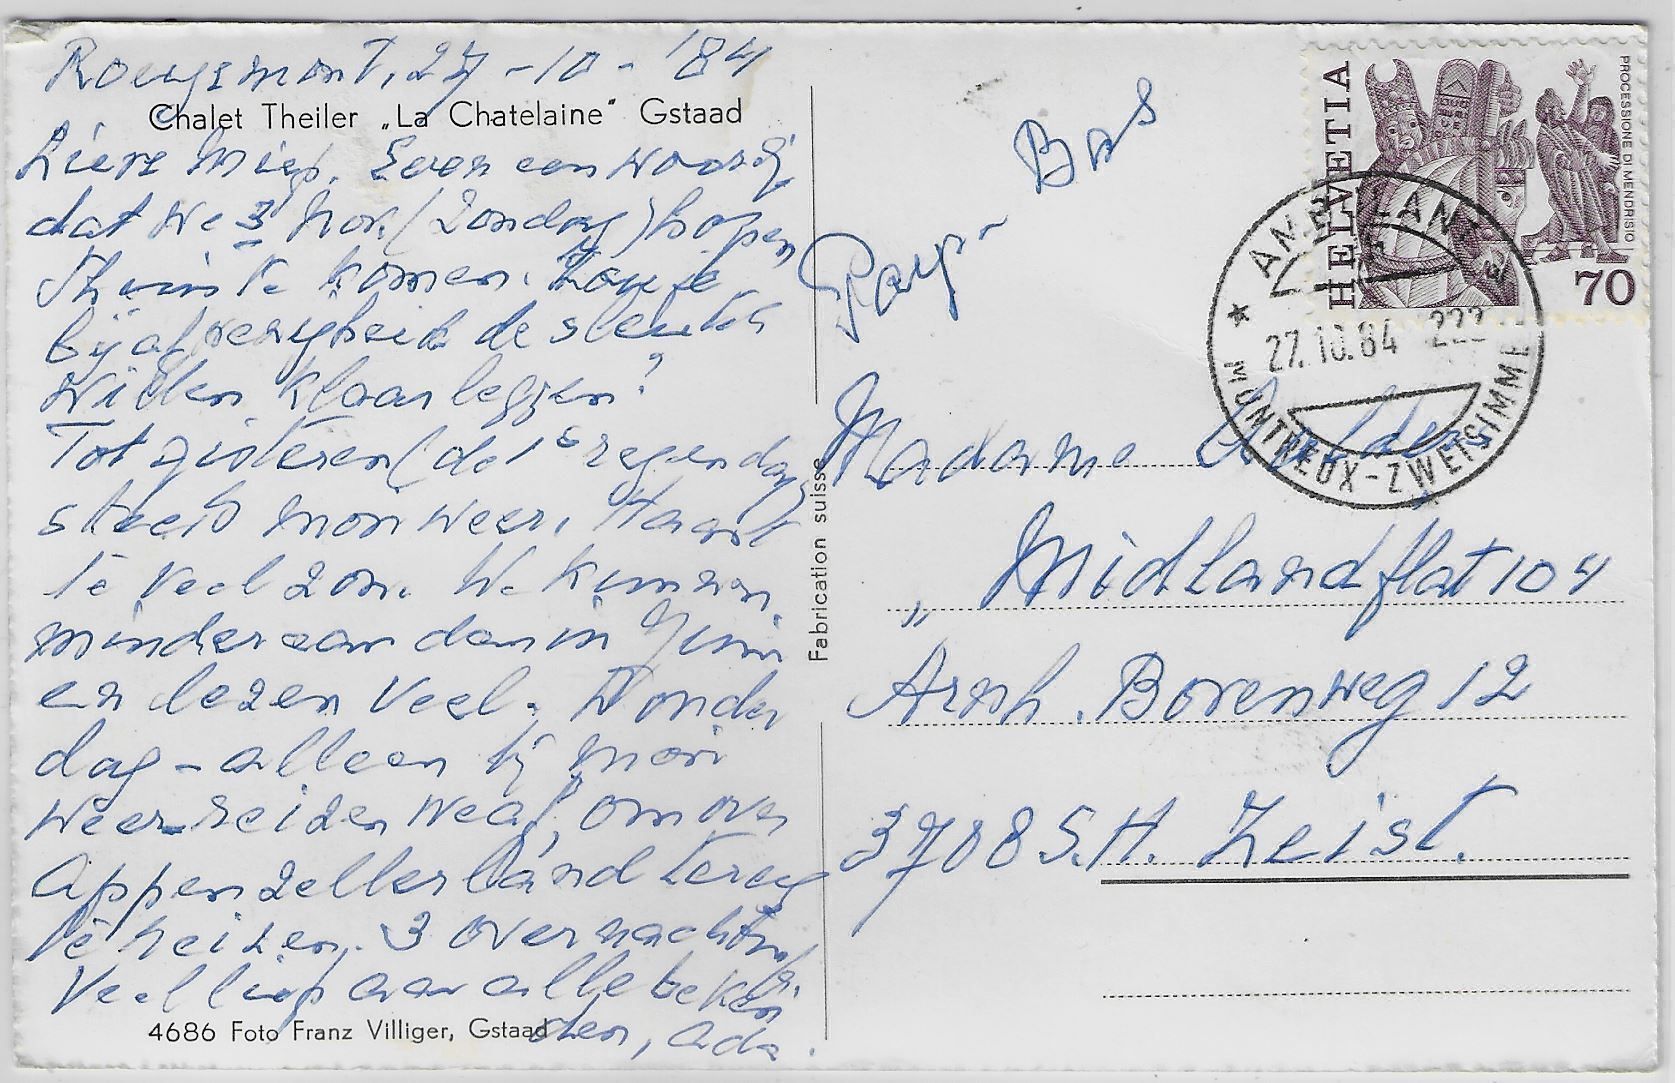 Rougemont, 27-10-'84
Chalet Theiler „La Chatelaine" Gstaad
Lieve Miep. Even een woordj
dat we 3 Nov. (Zondag) hopen
thuis te komen. Zou je
bij afwezigheid de sleutel
willen klaar leggen?
Tot gisteren (de 1e regendag
steeds mooi weer. Haast
te veel zon. We kunnen
minder aan dan in Juni
en lezen veel. Donder
dag - alleen bij mooi
weer - reizen we al, om over
Appenzellerland terug
te reizen. 3 overnachtin
Veel liefs aan alle beken
den, Ada.
4686 Foto Franz Villiger, Gstaad
Fabrication suisse
Bas
HELVETIA
PROCESSIONE DI MENDRISIO
70
27.10.84
MONTREUX-ZWEISIMMEN
Madame
„ Midlandflat 104
Arnh. Bovenweg 12
3708 S.H. Zeist.